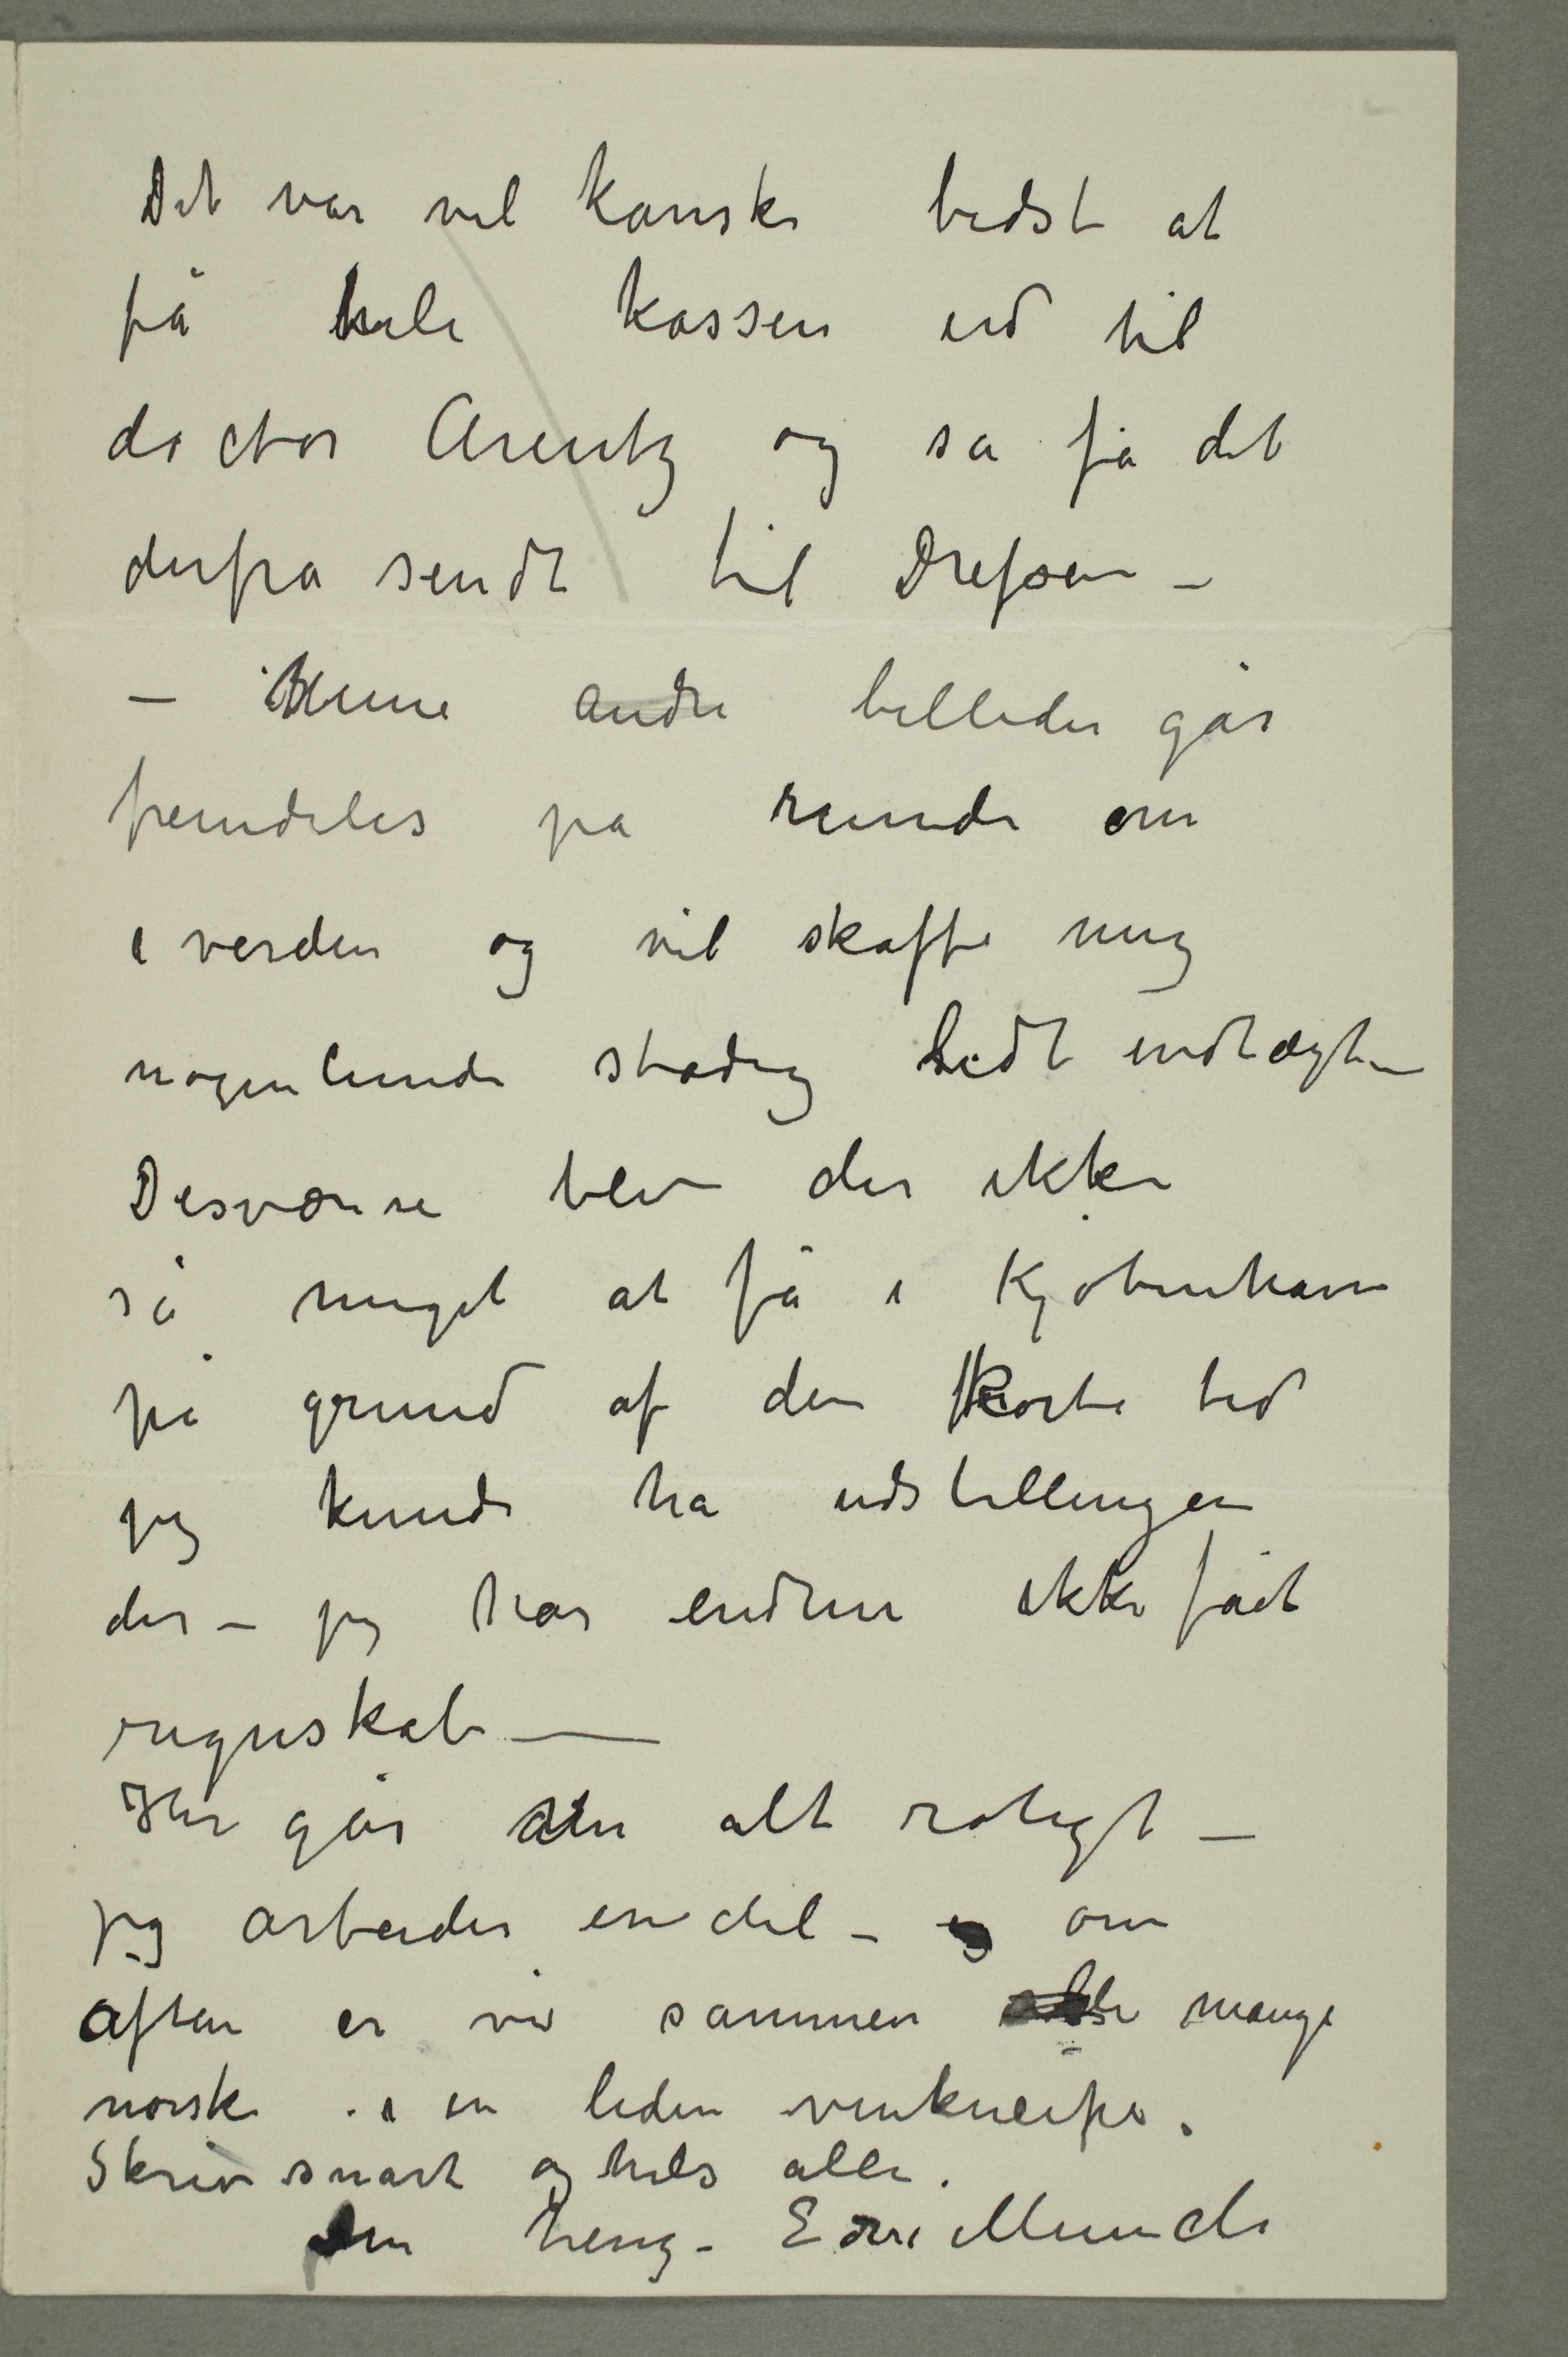 Det var vel kanske bedst at
få hele kassen ud til
doctor Arentz og sa få det
derfra sendt til Grefsen –
– Mine andre billeder går
fremdeles på runde om
i verden og vil skaffe mig
nogenlunde stadig lidt indtægt –
Desværre blev der ikke
så meget at få i Kjøbenhavn
på grund af den korte tid
jeg kunde ha udstillingen
der – jeg har endnu ikke fåt
regnskab –
Her går den alt roligt –
jeg arbeider en del – om
aften er vi sammen mange
norske i en liden vinkneipe.
Skriv snart og hils alle.
Din heng. Edv. Munch